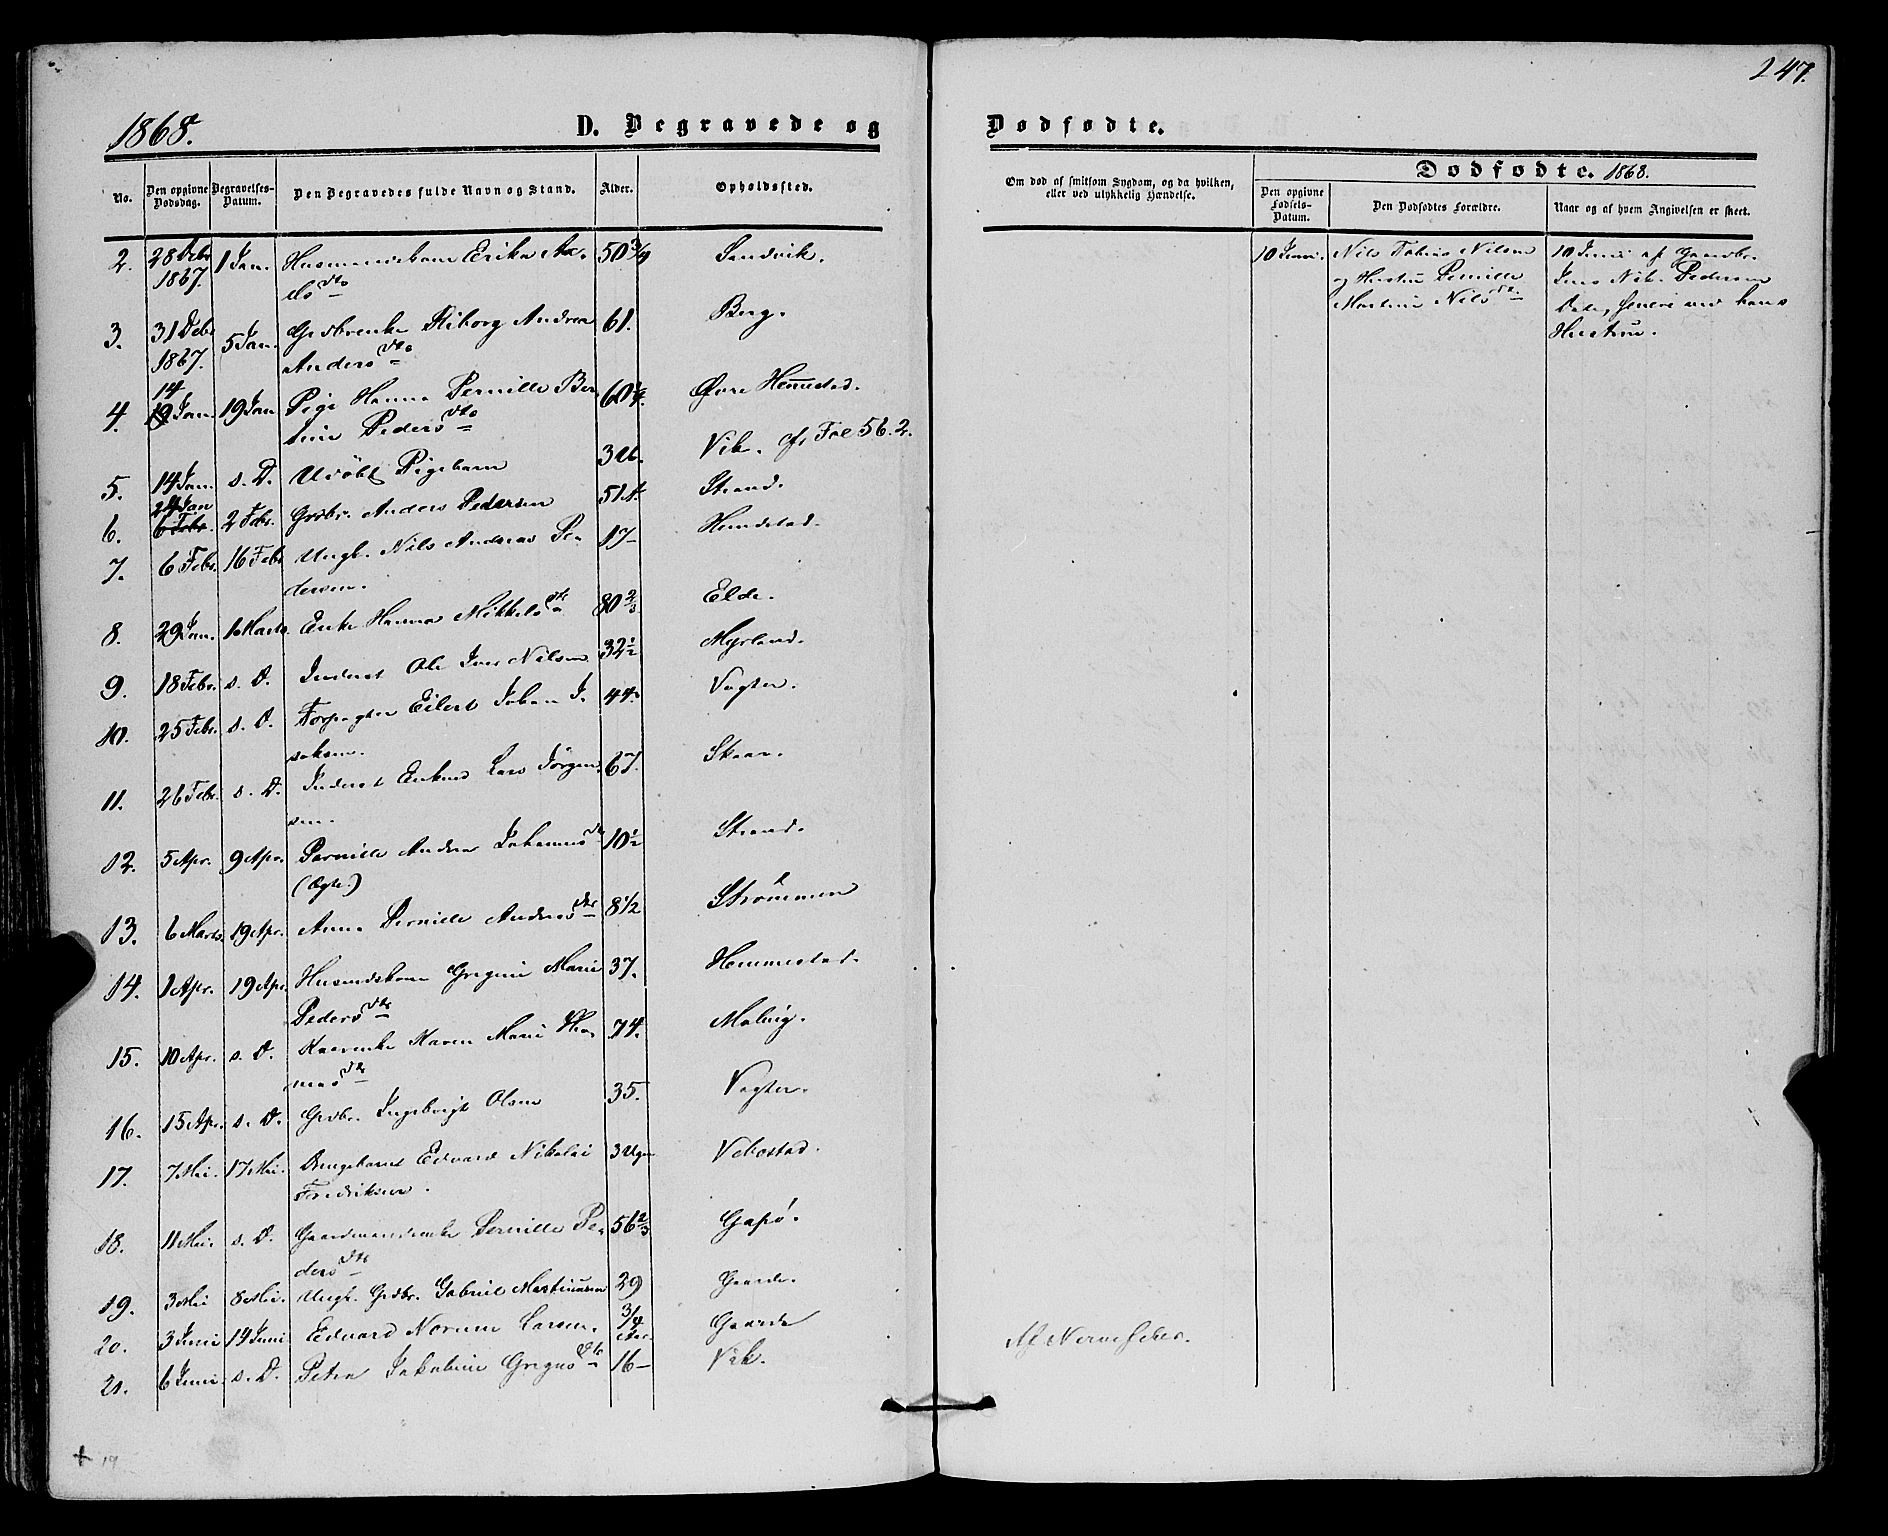 247.
1868.
D. Begravede og Dødfødte.
No.
Den opgivne Dødsdag.
Begravelses-Datum.
Den Begravedes fulde Navn og Stand.
Alder.
Opholdssted.
Om død af smitsom Sygdom, og da hvilken,
eller ved ulykkelig Hændelse.
Dødfødte. 1868.
Den opgivne Fødsels-Datum.
Den Dødfødtes Forældre.
Naar og af hvem Angivelsen er skeet.
2. 28 Debr 1867. 1 Jan. Husmandskone Erika Ax- 50 3/4 Sandvik.
els dtr
3. 31 Debr 1867. 5 Jan. Grdbrenke Andrea 61. Berg.
Anders dtr
4. 14 Jan. 19 Jan Pige Hanna Pernille Ber- 60 Øvre Hemestad.
Peders dtr
5. 14 Jan. s. D. Udøbt Pigebarn 3 U. Vik. cfr Fol 56. 2.
6. 24 Jan 6 Febr. 2 Febr. Grdbr. Anders Pedersen 51 Strand.
7. 6 Febr. 16 Febr Ungk. Nils Andreas Pe- 17 Hemdstad.
dersen.
8. 29 Jan. 1 Marts. Enke Hanna Mikkels dtr 80 2/3 Elde.
9. 18 Febr. s. D. Inderst Ole Nilsen 32 1/2 Myrland.
10. 25 Febr. s. D. Forpagter Eilert Johan I- 44. Vagter.
saksen.
11. 26 Febr. s. D. Inderst Enkmd Lars Jörgen- 67. Skaar.
sen.
12. 5 Apr. 9 Apr. Pernille Andrea Johannes dtr 10 1/2 Strand.
(Ægte.)
13. 6 Marts. 19 Apr. Anna Pernille Andreas dtr 8 1/2 Strømmen
14. 1 Apr. 19 Apr. Husmdskone Gregine Marie 37. Hemmestad.
Peders dtr
15. 10 Apr. s. D. Karen Marie Tho- 74. Melvig.
mas dtr
16. 15 Apr. s. D. Grdbr. Ingebrigt Olsen 35. Vagter.
17. 7 Mai. 17 Mai. Drengebarnet Edvard Nikolai 3 Uger Vebostad.
Fredriksen.
18. 11 Mai. s. D. Gaardmandsenke Pernille Pe- 56 2/3 Gapø.
ders dtr
19. 3 Mai 8 Mai. Ungk. Grdbr. Gabriel Martinusen 29 Gaarde.
20. 3 Juni 14 Juni Edvard Norum Larsen. 3/4 Aar Gaarde Af Nervefeber.
21. 6 Juni. s. D. Petra Jakobine Gregus dtr 16 Vik.
10 Juni. Nils Tobias Nilsen
og Hustru Pernille
Martine Nils dtr
10 Juni af Gaardbr.
Jens Nik. Pedersen
hans
Hustru.
19